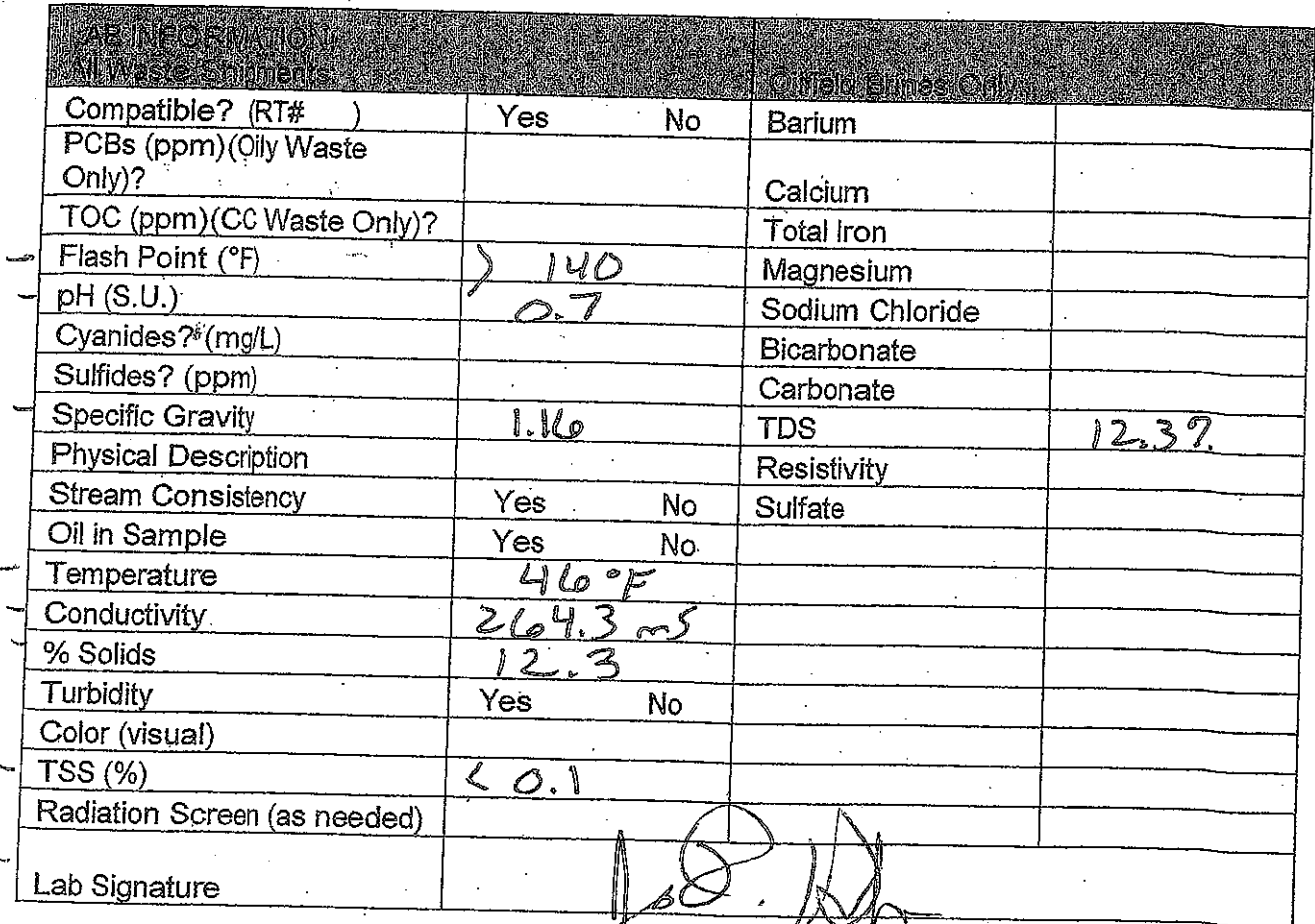 LAB INFORMATION
All Waste Shipments Oilfield Brines Only
Compatible? (RT# ) Yes No Barium
PCBs (ppm)(Oily Waste
Only)? Calcium
TOC (ppm)(CC Waste Only)? Total Iron
Flash Point (°F) > 140 Magnesium
pH (S.U.) 0.7 Sodium Chloride
Cyanides? (mg/L) Bicarbonate
Sulfides? (ppm) Carbonate
Specific Gravity 1.16 TDS 12.3%
Physical Description Resistivity
Stream Consistency Yes No Sulfate
Oil in Sample Yes No
Temperature 46 °F
Conductivity 264.3 mS
% Solids 12.3
Turbidity Yes No
Color (visual)
TSS (%) < 0.1
Radiation Screen (as needed)
Lab Signature